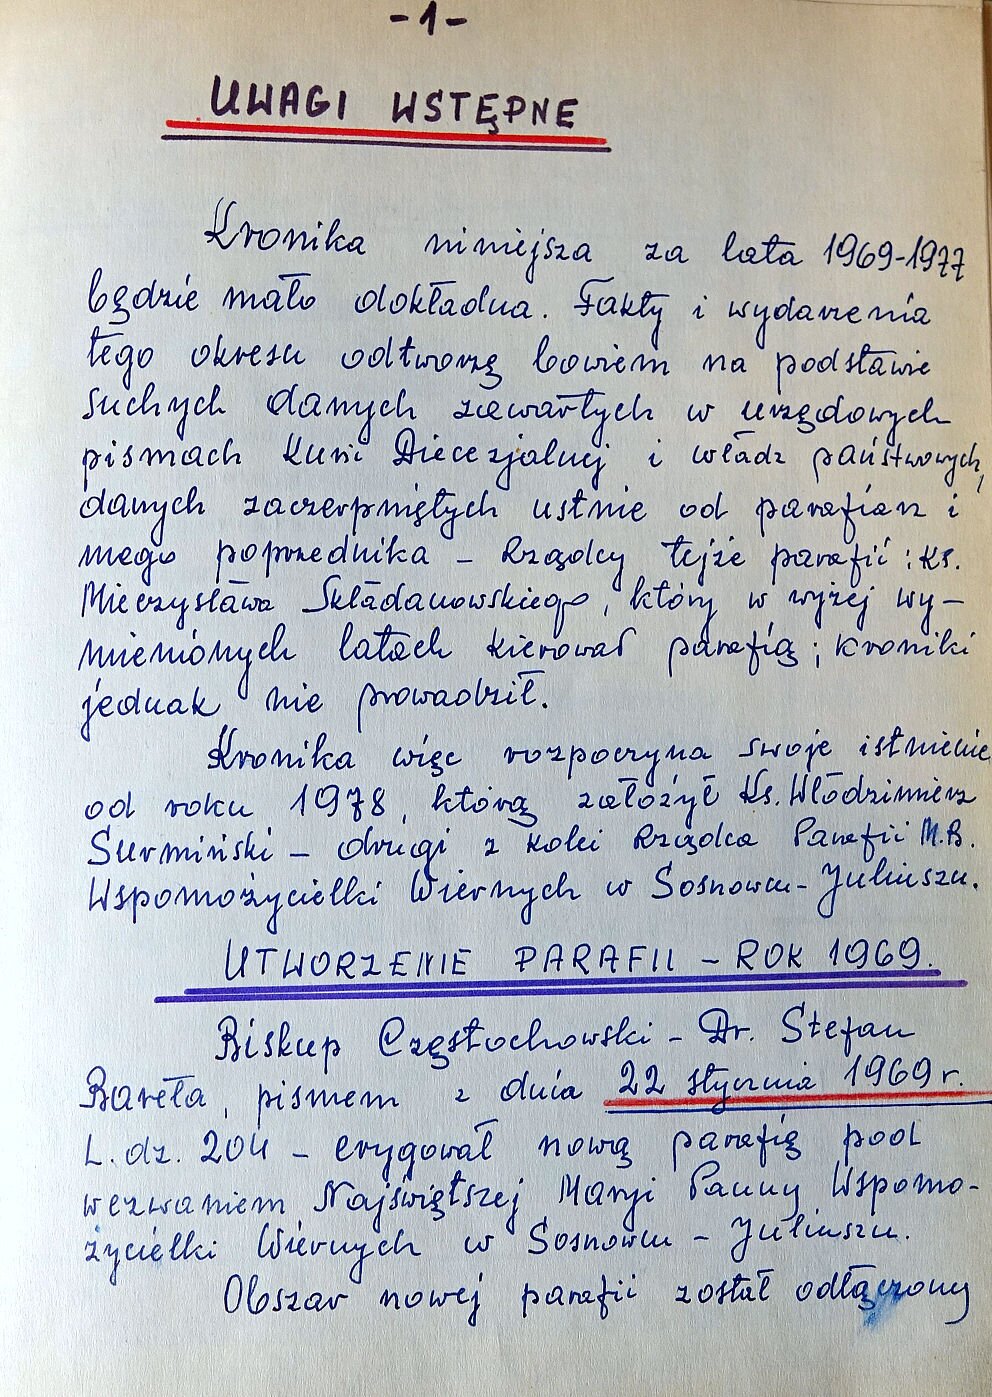 -1-
UWAGI WSTĘPNE
Kronika niniejsza za lata 1969-1977
będzie mało dokładna. Fakty i wydarzenia
tego okresu odtworzę bowiem na podstawie
suchych danych zawartych w urzędowych
pismach Kurii Diecezjalnej i władz państwowych,
danych zaczerpniętych ustnie od parafian i
mego poprzednika – Rządcy tejże parafii : Ks.
Mieczysława Składanowskiego, który w wyżej wy-
mienionych latach kierował parafią ; kroniki
jednak nie prowadził.
Kronika więc rozpoczyna swoje istnienie
od roku 1978, którą założył Ks. Włodzimierz
Surmiński – drugi z kolei Rządca Parafii M.B.
Wspomożycielki Wiernych w Sosnowcu-Juliuszu.
UTWORZENIE PARAFII – ROK 1969.
Biskup Częstochowski – Dr. Stefan
Bareła, pismem z dnia 22 stycznia 1969 r.
L. dz. 204 – erygował nową parafię pod
wezwaniem Najświętszej Maryi Panny Wspomo-
życielki Wiernych w Sosnowcu – Juliuszu.
Obszar nowej parafii został odłączony